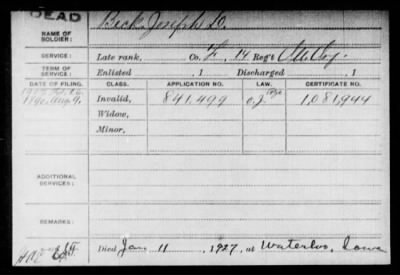 DEAD
NAME OF SOLDIER: Beck, Joseph D.
SERVICE: Late rank, Co. F, 14 Reg't
TERM OF SERVICE: Enlisted , 1 Discharged , 1
DATE OF FILING. CLASS. APPLICATION NO. LAW. CERTIFICATE NO.
1890 Aug. 9. Invalid, 841,499 1,081,944
Widow,
Minor,
ADDITIONAL SERVICES:
REMARKS:
Died Jan 11, 1927, at Waterloo, Iowa